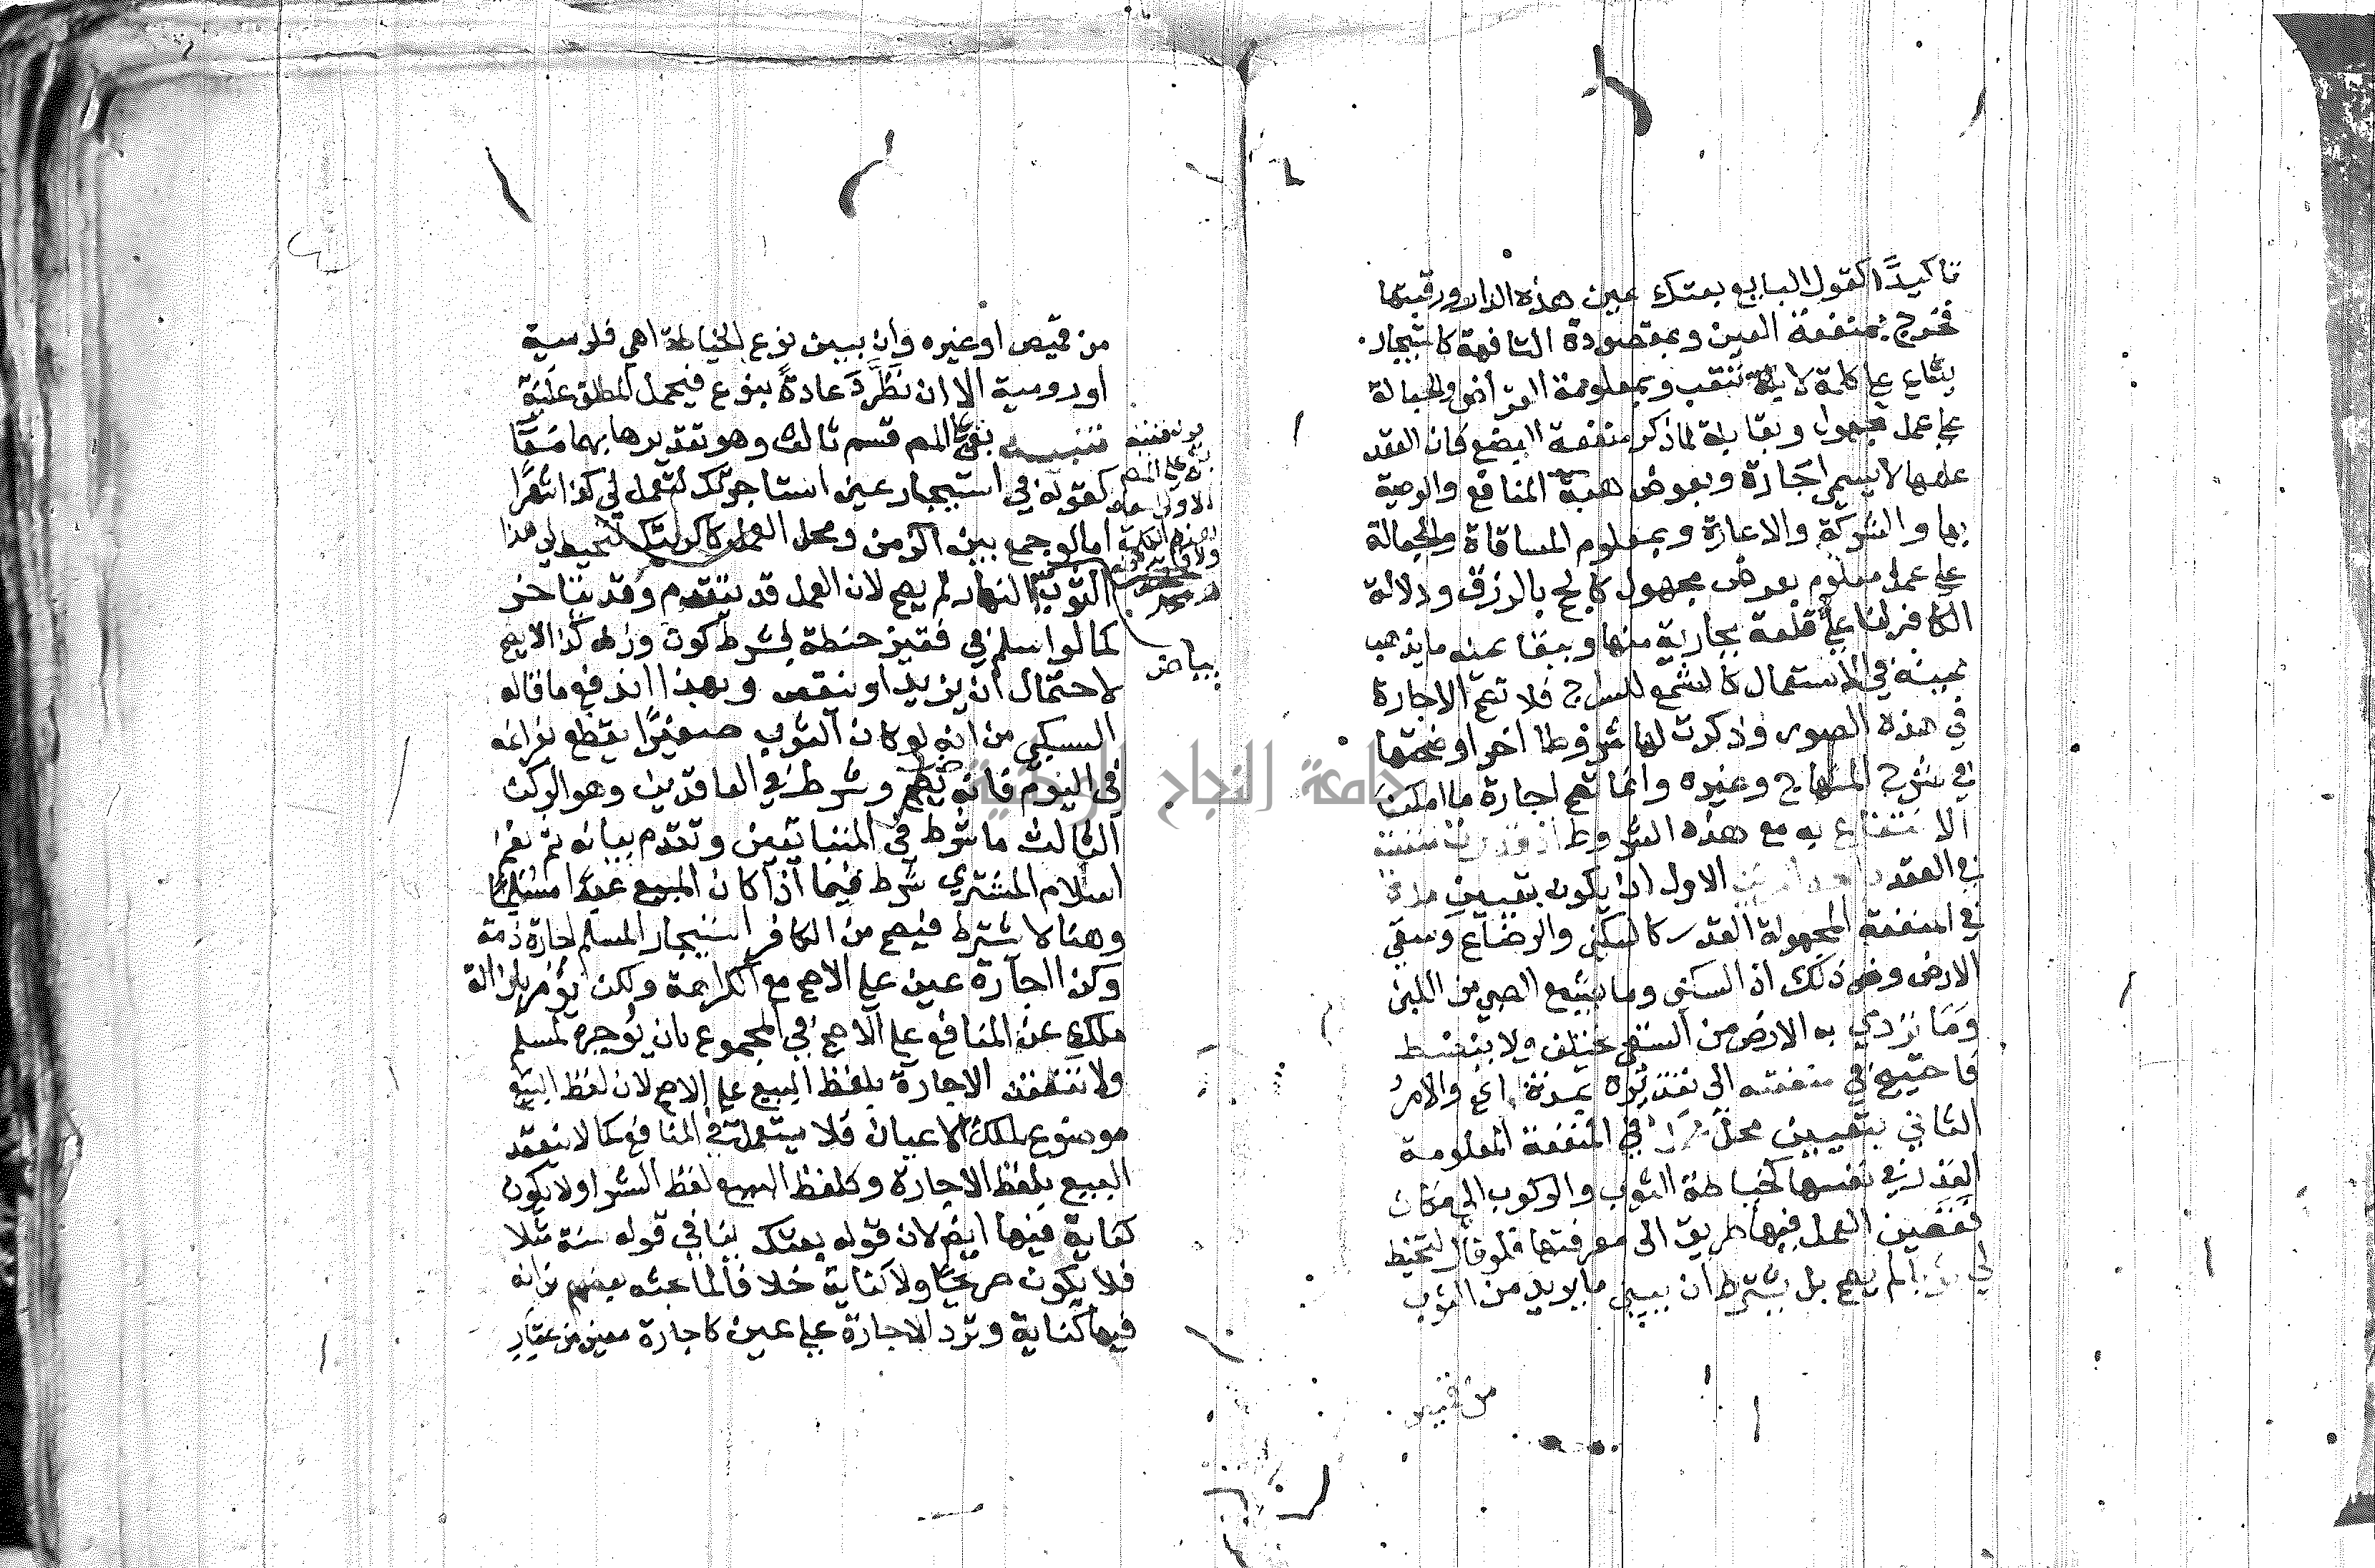 تاكيدًا كقول البايع بعتك عين هذه الدار ورقبتها
فخرج بمنفعة العين وبمقصودة التافهة كاستيجار
بياع على كلمة لا تتعب وبمعلومة القراض والجعالة
على عمل مجهول وبقابلة لما ذكر منفعة البضع فان العقد
عليها لا يسمى اجارة وبعوض هبة المنافع والوصية
بها والشركة والاعارة وبمعلوم المساقاة والجعالة
على عمل معلوم بعوض مجهول كالحج بالرزق ودلالة
الكافر لنا على قلعة بجارية منها وببقا عينه ما يذهب
عينه في الاستعمال كالشمع للسراج فلا تصح الاجارة
في هذه الصور وذكرت لها شروطا اخر اوضحتها
في شرح المنهاج وغيره وانما تصح اجارة ما امكن
الانتفاع به مع هذه الشروط اذا قدرت منفعته
في العقد باحد امرين الاول ان يكون بتعيين مدة
في المنفعة المجهولة القدر كالسكنى والرضاع وسقي
الارض ونحو ذلك اذ السكنى وما يشبع الصبي من اللبن
وما تروى به الارض من السقي مختلف ولا ينضبط
فاحتيج في منفعته الى تقديره بمدة اي والامر
الثاني بتعيين محل عمل في المنفعة المعلومة
القدر في نفسها كخياطة الثوب والركوب الى مكان
فتعيين العمل فيها طريق الى معرفتها فلو قال لتخيط
لي ثوبا لم يصح بل يشترط ان يبين ما يريد من الثوب
من قميص
من قميص او غيره وان يبين نوع الخياطة اهي فلوسية
او رومية الا ان تطرد عادة بنوع فيحمل المطلق عليه
تنبيه بقي على المص قسم ثالث وهو تقديرها بهما معًا
كقوله في استيجار عين استاجرتك لتعمل لي كذا شهرًا
اما لو جمع بين الزمن ومحل العمل كاكتريتك لتخيط لي هذا
الثوب النهار لم يصح لان العمل قد يتقدم وقد يتاخر
كما لو اسلم في قفيز حنطة بشرط كون وزنه كذا لا يصح
لاحتمال ان يزيد او ينقص وبهذا اندفع ما قاله
السبكي من انه لو كان الثوب صغيرًا يقطع بفراغه
في اليوم فانه يصح وشرط في العاقدين وهو الركن
الثالث ما شرط في المتبايعين وتقدم بيانه ثم نعم
اسلام المشتري شرط فيما اذا كان المبيع عبدًا مسلمًا
وهنا لا يشترط فيصح من الكافر استيجار المسلم اجارة ذمة
وكذا اجارة عين على الاصح مع الكراهة ولكن يؤمر بازالة
ملكه عن المنافع على الاصح في المجموع بان يؤجره لمسلم
ولا تنعقد الاجارة بلفظ البيع على الاصح لان لفظ البيع
موضوع لملك الاعيان فلا يستعمل في المنافع كما لا ينعقد
البيع بلفظ الاجارة وكلفظ البيع لفظ الشرا ولا يكون
كناية فيها ايضا لان قوله بعتك ينافي قوله سنة مثلا
فلا يكون صريحًا ولا كناية خلافا لما بحثه بعضهم من انه
فيها كناية وترد الاجارة على عين كاجارة معين من عقار
بياض
جامعة النجاح الوطنية